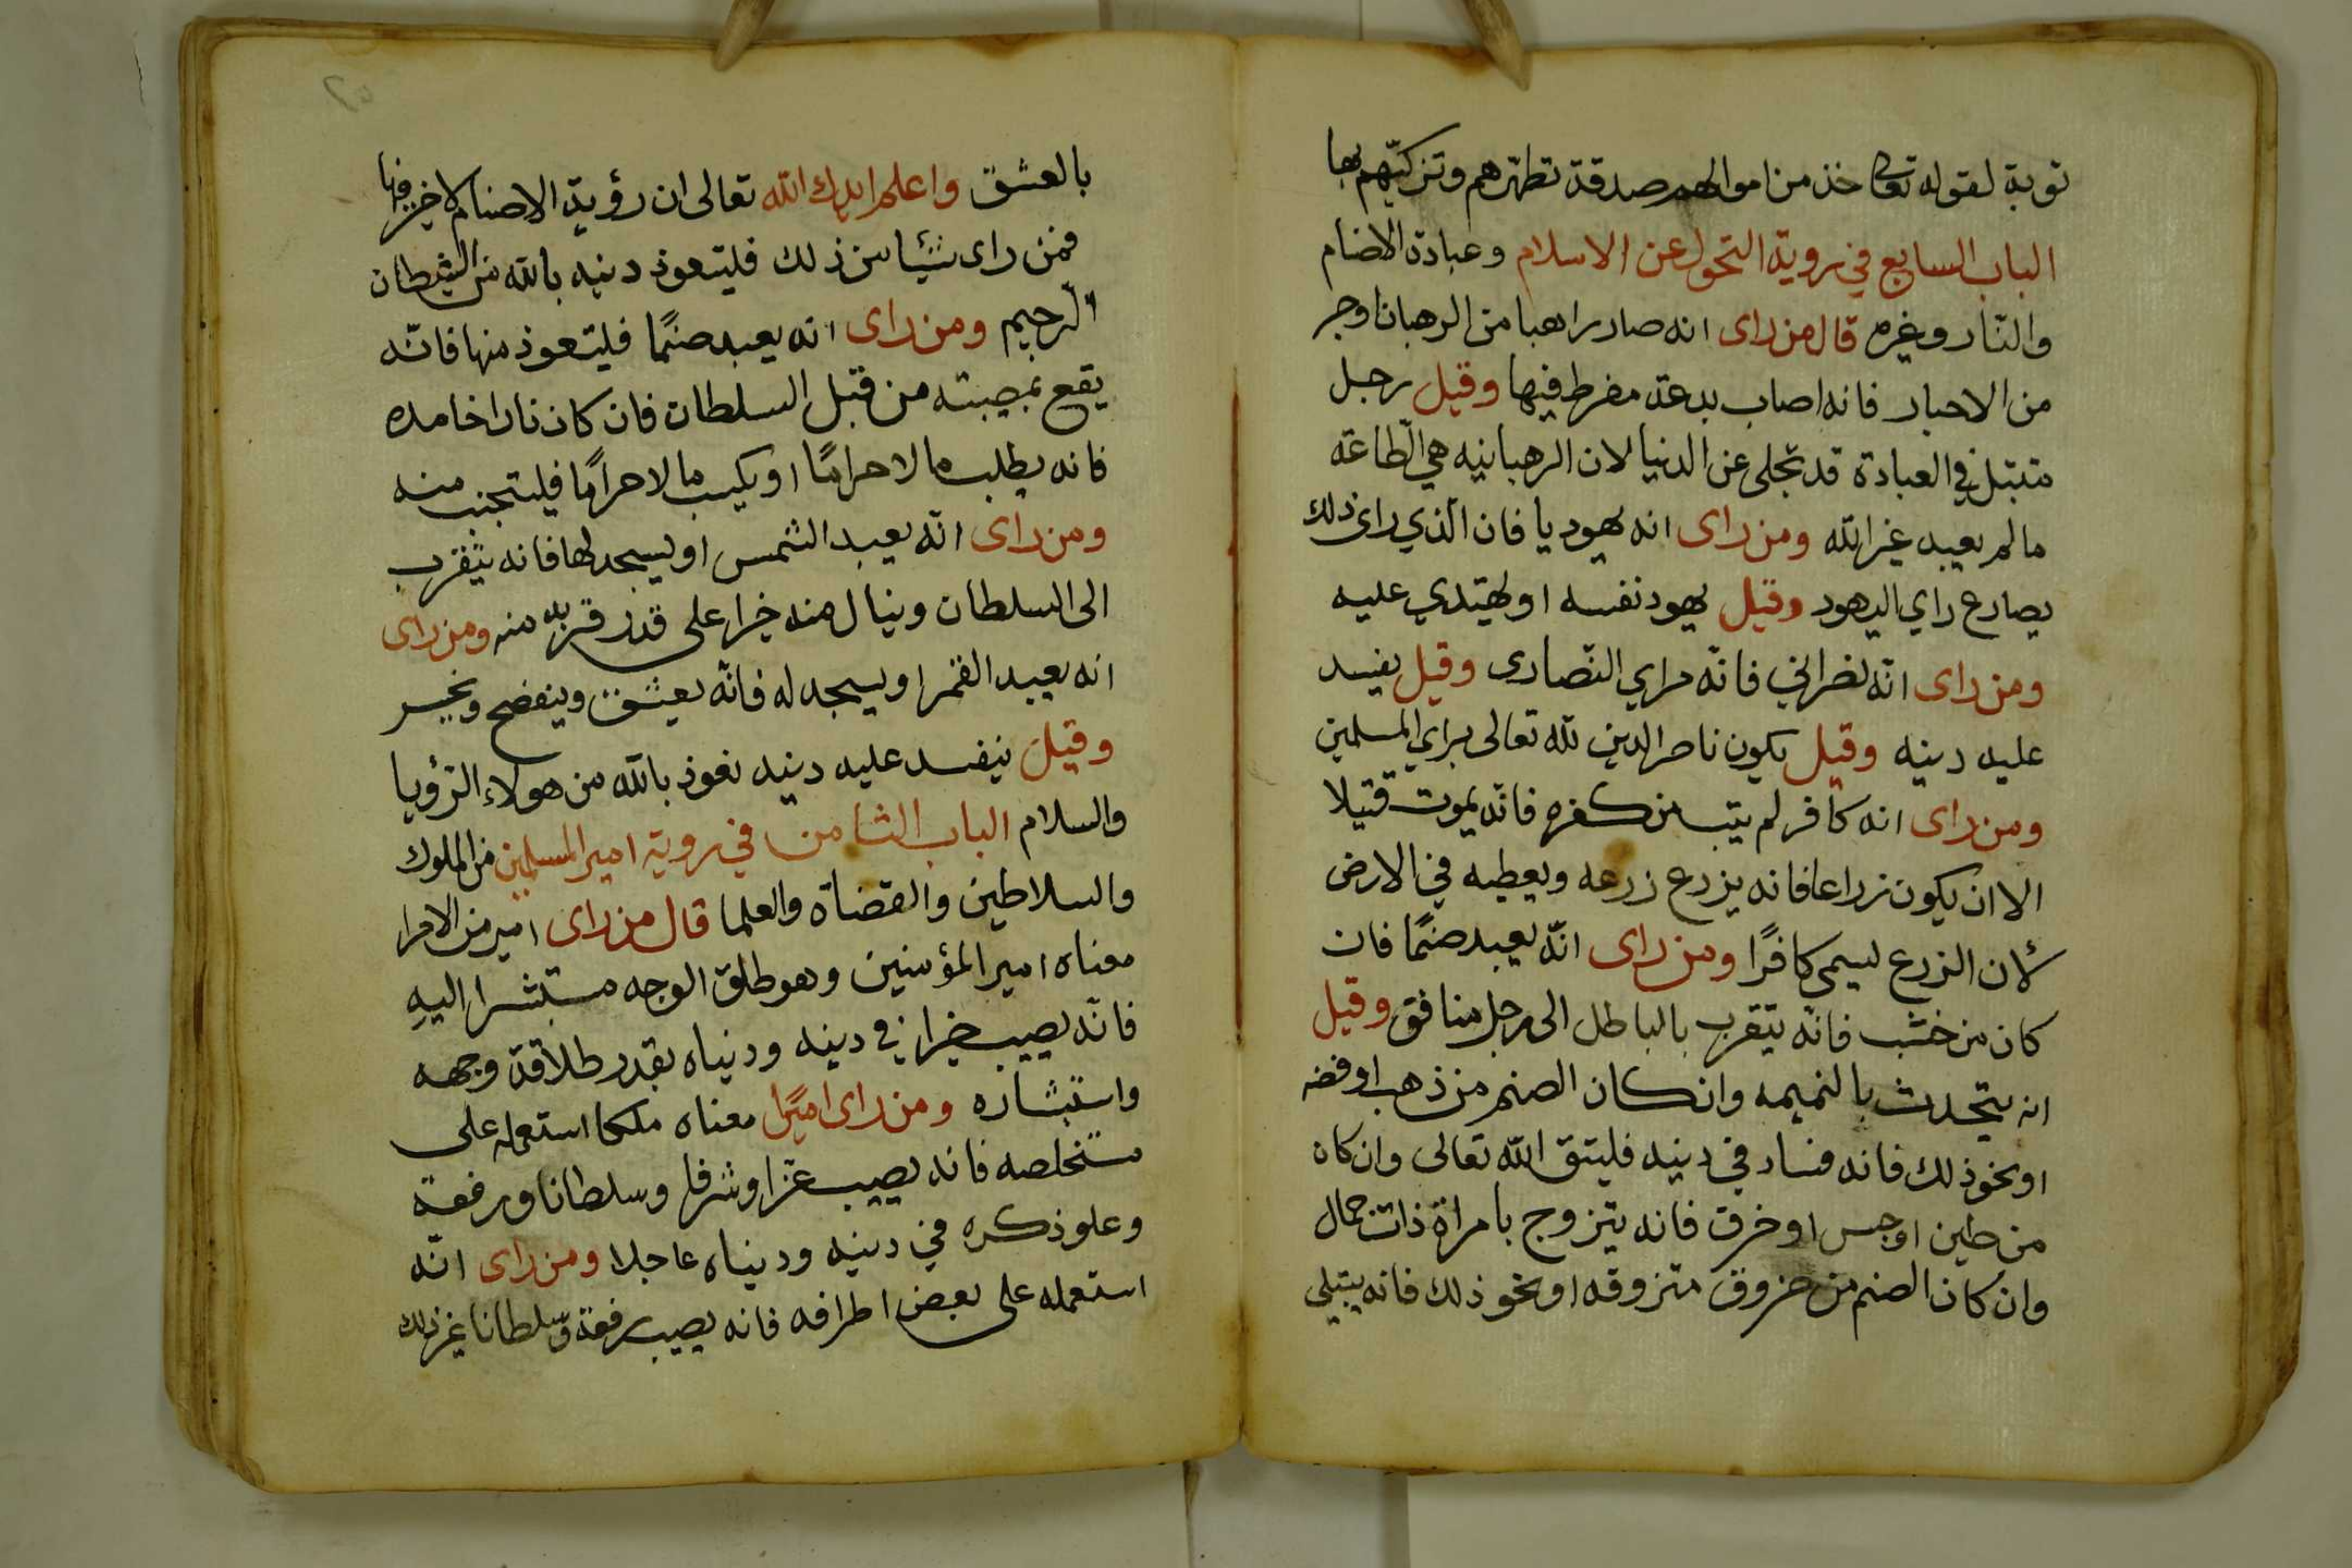 توبة لقوله تعالى خذ من اموالهم صدقة تطهرهم وتزكيهم بها
الباب السابع في روية التحول عن الاسلام وعبادة الاصنام
والنار وغيره قال من راى انه صار راهبا من الرهبان اوحبر
من الاحبار فانه اصاب بدعة مفرط فيها وقيل رجل
متبتل في العبادة قد تخلى عن الدنيا لان الرهبانيه هي الطاعة
ما لم يعبد غير الله ومن راى انه يهوديا فان الذي راى ذلك
يصارع راي اليهود وقيل يهود نفسه او يهتدي عليه
ومن راى انه نصراني فانه مراي النصارى وقيل يفسد
عليه دينه وقيل يكون ناصر الدين لله تعالى براي المسلمين
ومن راى انه كافر لم يتب من كفره فانه يموت قتيلا
الا ان يكون زراعا فانه يزرع زرعه ويعطيه في الارض
لأن الزرع ليسمى كافرًا ومن راى انّه يعبد صنمًا فان
كان من خشب فانه يتقرب بالباطل الى رجل منافق وقيل
انه يتحدث بالنميمه وان كان الصنم من ذهب اوفضه
اونحوذلك فانه فساد في دينه فليتق الله تعالى وان كان
من طين اوجبس اوخرق فانه يتزوج بامراة ذات جمال
وان كان الصنم من حزوق متزوقه اونحوذلك فانه يبتلي
بالعشق واعلم ايدك الله تعالى ان رؤية الاصنام لاخير فيها
فمن راى شيئا من ذلك فليتعوذ دينه بالله من الشيطان
الرجيم ومن راى انه يعبد صنمًا فليتعوذ منها فانّه
يقع بمصيبته من قبل السلطان فان كان نارا خامده
فانه يطلب مالا حرامًا او يكسب مالا حرامًا فليتجنب منه
ومن راى انّه يعبد الشمس اويسجد لها فانه يتقرب
الى السلطان وينال منه خيرا على قدر قربه منه ومن راى
انه يعبد القمر اويسجد له فانه يعشق وينفضح ويخسر
وقيل ينفسد عليه دينه نعوذ بالله من هولاء الرؤيا
والسلام الباب الثامن في روية امير المسلمين من الملوك
والسلاطين والقضاة والعلما قال من راى امير من الامرا
معناه امير المؤمنين وهوطلق الوجه مستبشرا اليهِ
فانّه يصيب خيرا في دينه ودنياه بقدر طلاقة وجهه
واستبشاره ومن راى اميرًا معناه ملكا استعمله على
مستخلصه فانه يصيب عزا وشرفا وسلطانا ورفعة
وعلوذكره في دينه ودنياه عاجلا ومن راى انّه
استعمله على بعض اطرافه فانه يصيب رفعة وسلطانا غير ذلك